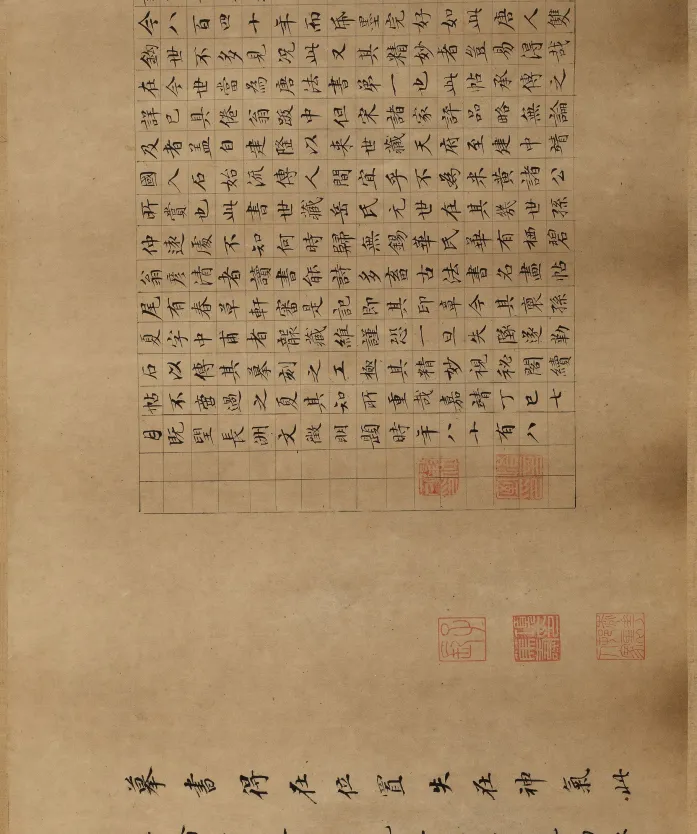 今八百四十年而紙墨完好如此唐人雙
鈎世不多見況此又其精妙者豈易得哉
在今世當為唐法書第一也此帖承傳之
詳已具倦翁跋中但宋諸家評品略無論
及者蓋自建隆以來世藏天府至建中靖
國入石始流傳人間宜乎不為米黃諸公
所賞也此書世藏岳氏元世在其幾世孫
仲遠處不知何時歸無錫華氏華有栖碧
翁彥清者讀書能詩多畜古法書名畫帖
尾有春草軒審是記即其印章今其裔孫
夏字中甫者襲藏維謹恐一旦失墜遂勒
石以傳其摹刻之工極其精妙視秘閣續
帖不啻過之夏其知所重哉嘉靖丁巳七
月既望長洲文徵明題時年八十有八
摹書得在位置失在神氣此